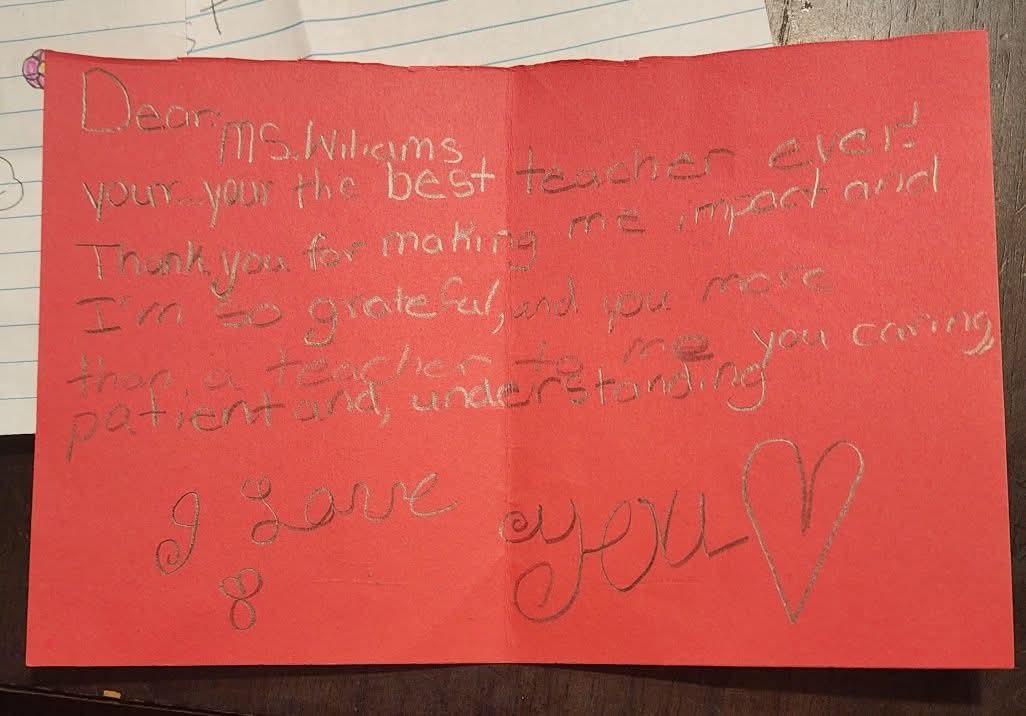 Dear:
MS. Wiliams
your..your the best teacher ever!
Thank you for making me impact and
I'm so grateful, and you more
than a teacher to me you caring,
patient and, understanding
I Love you
8